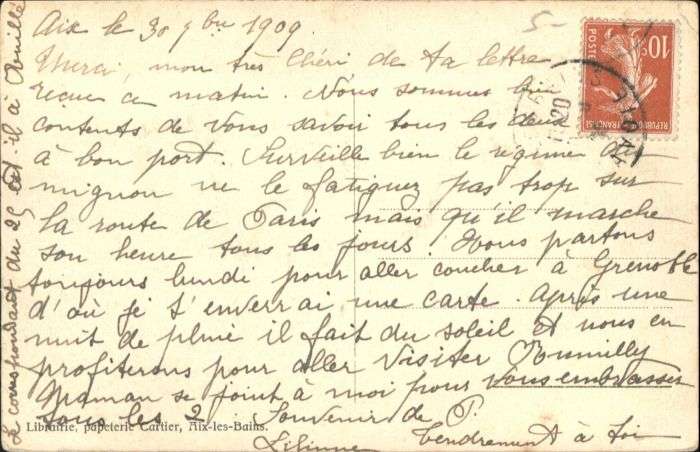 Aix le 30 7bre 1909.
Merci, mon très chéri de ta lettre
reçue ce matin. Nous sommes bien
contents de vous savoir tous les deux
à bon port. Surveille bien le régime du
mignon ne le fatiguez pas trop sur
la route de Paris mais qu'il marche
son heure tous les jours. Nous partons
toujours lundi pour aller coucher à Grenoble
d'où je t'enverrai une carte. Après une
nuit de pluie il fait du soleil et nous en
profiterons pour aller visiter Rumilly
Maman se joint à moi pour vous embrasser
tous les 2. Souvenir de P.
Tendrement à toi
Librairie, papeterie Cartier, Aix-les-Bains.
Le correspondant du 25 est-il à
5-
10c
POSTES
REPUBLIQUE FRANÇAISE